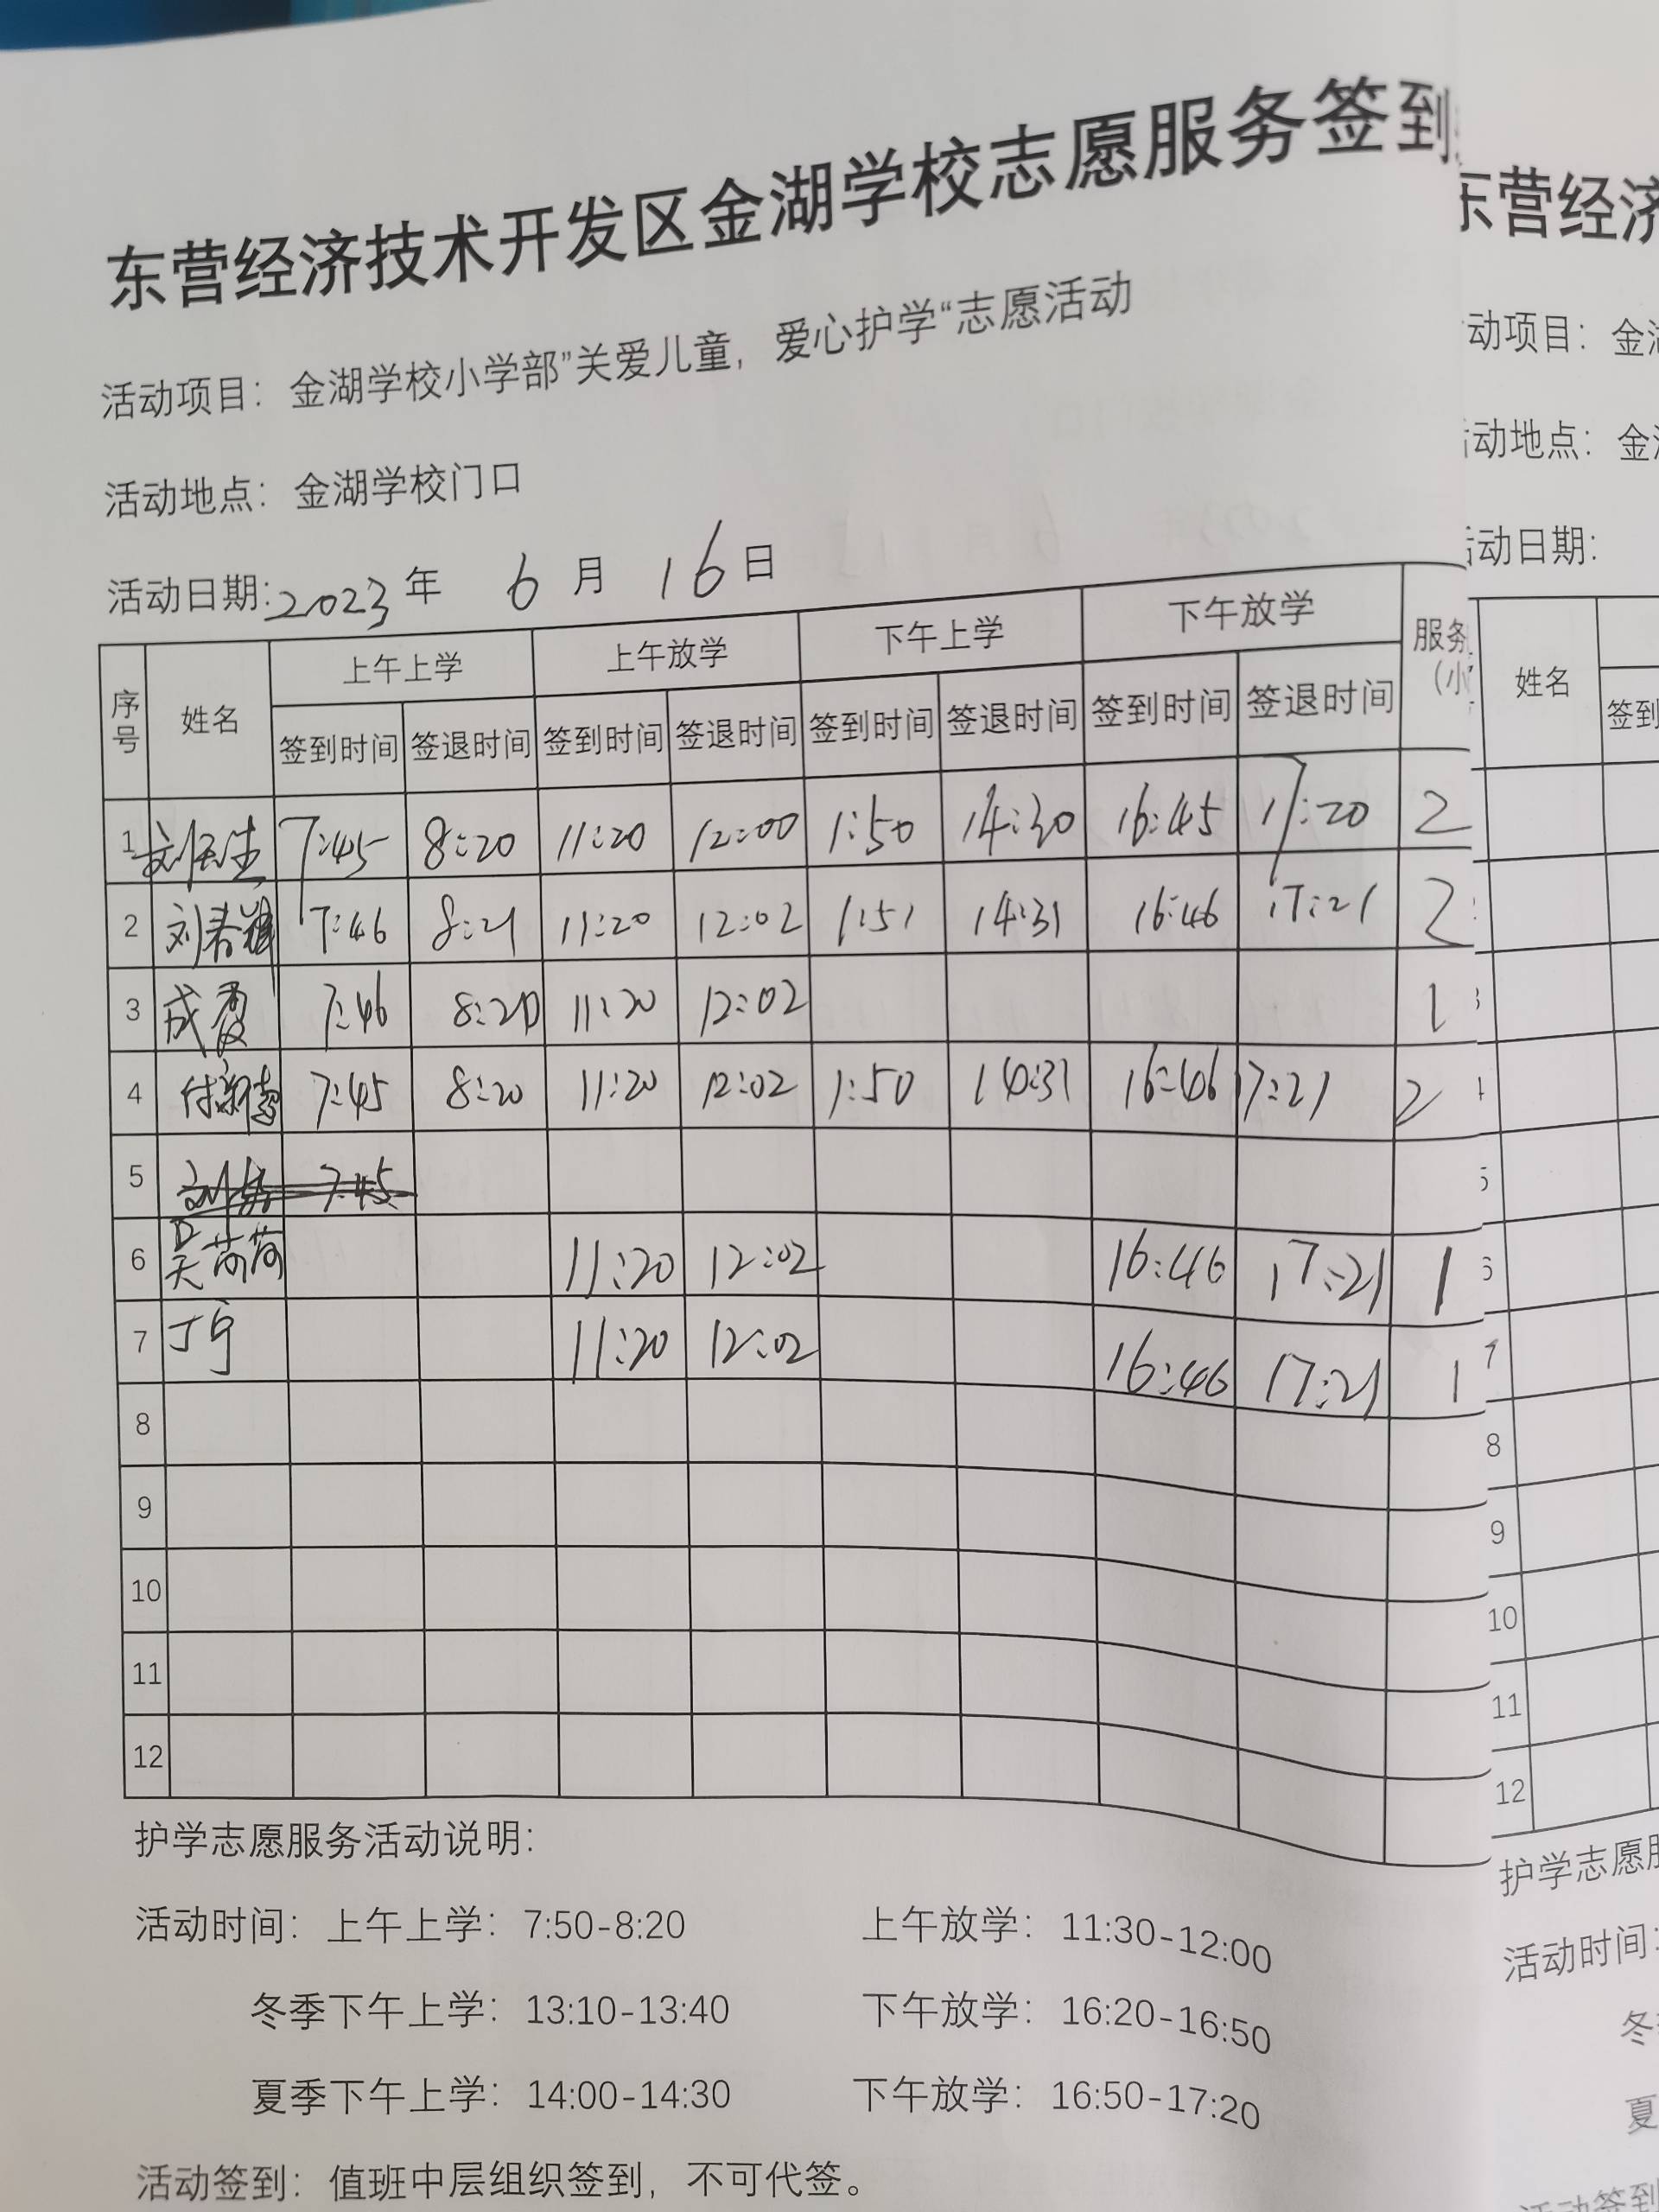 东营经济技术开发区金湖学校志愿服务签到
活动项目：金湖学校小学部”关爱儿童，爱心护学“志愿活动
活动地点：金湖学校门口
活动日期：2023年 6 月 16日
序号 姓名 上午上学 上午放学 下午上学 下午放学 服务
签到时间 签退时间 签到时间 签退时间 签到时间 签退时间 签到时间 签退时间 （小
1 7:45 8:20 11:20 12:00 1:50 14:30 16:45 17:20 2
2 刘春 7:46 8:21 11:20 12:02 1:51 14:31 16:46 17:21 2
3 成霞 7:46 8:20 11:20 12:02 1
4 7:45 8:20 11:20 12:02 1:50 14:31 16:46 17:21 2
5 7:45
6 吴荷荷 11:20 12:02 16:46 17:21 1
7 丁宁 11:20 12:02 16:46 17:21 1
8
9
10
11
12
护学志愿服务活动说明：
活动时间：上午上学：7:50-8:20 上午放学：11:30-12:00
冬季下午上学：13:10-13:40 下午放学：16:20-16:50
夏季下午上学：14:00-14:30 下午放学：16:50-17:20
活动签到：值班中层组织签到，不可代签。
东营经济
动项目：金
动地点：金
动日期：
姓名
签到
8
9
10
11
12
护学志愿
活动时间：
冬
夏
活动签到